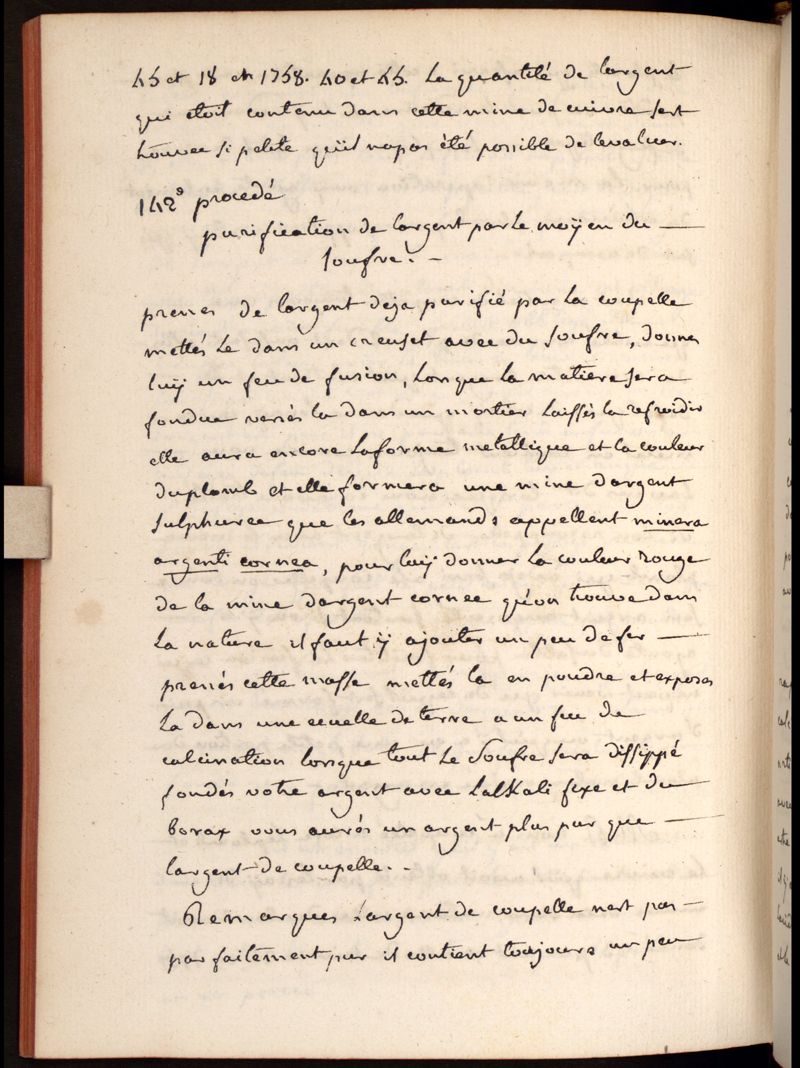 45 et 18 et 1758. 40 et 45. La quantité de largent
qui etoit contenu dans cette mine de cuivre sest
trouvee si petite quil napas été possible de levaluer.
142e procedé
purification de largent par le moÿen du —
soufre. -
prenes de largent deja purifié par la coupelle
mettés le dans un creuset avec du soufre, donnes
luÿ un feu de fusion, lorsque la matiere sera
fondue versés la dans un mortier laissés la refroidir
elle aura encore laforme metallique et la couleur
duplomb et elle formera une mine dargent
sulphuree que les allemands appellent minera
argenti cornea, pour luÿ donner la couleur rouge
de la mine dargent cornee qu'on trouve dans
la nature il faut ÿ ajouter un peu de fer —
prenés cette masse mettés la en poudre et exposes
la dans une ecuelle de terre a un feu de
calcination lorsque tout le soufre sera dissippé
fondés votre argent avec lalkali fixe et du
borax vous aurés un argent plus pur que —
largent de coupelle. -
Remarques Largent de coupelle nest pas —
parfaitement pur il contient toujours un peu